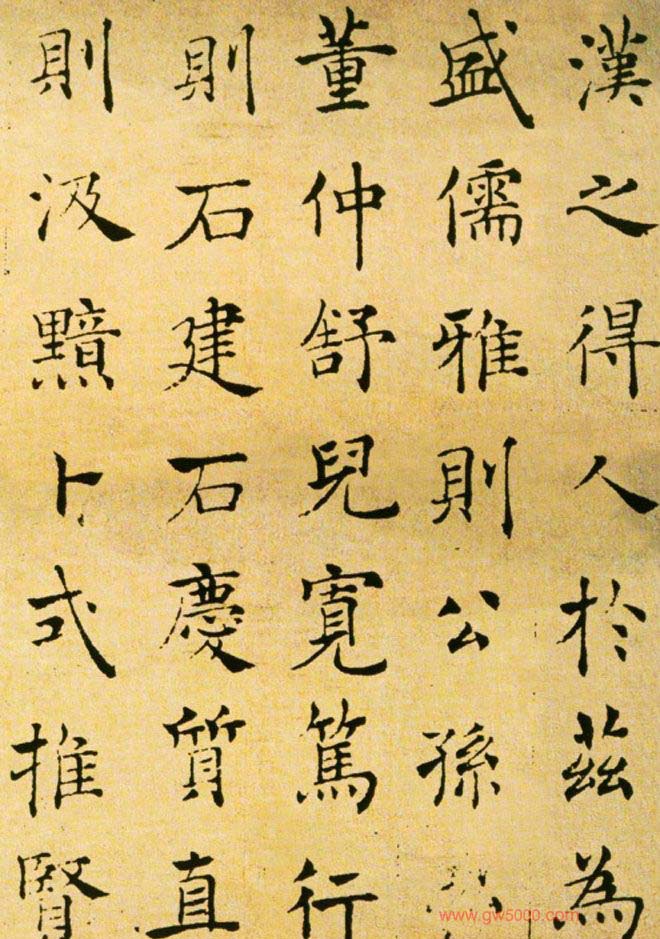 漢之得人於茲為
盛儒雅則公孫
董仲舒兒寬篤行
則石建石慶質直
則汲黯卜式推賢
www.gw5000.com